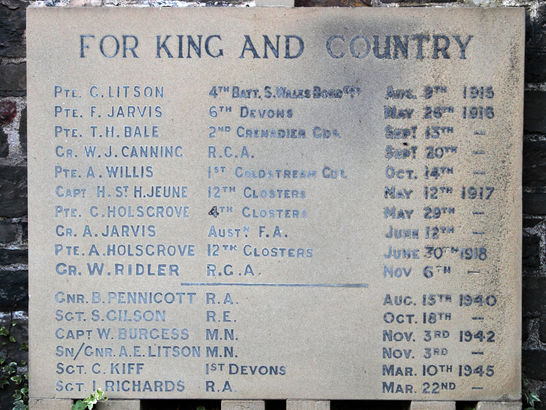 FOR KING AND COUNTRY
PTE. C. LITSON 4TH BATT. S. WALES BORDRS AUG. 9TH 1915
PTE. F. JARVIS 6TH DEVONS MAY 26TH 1916
PTE. T.H. BALE 2ND GRENADIER GDS. SEPT 13TH —
GR. W.J. CANNING R.G.A. SEPT 20TH —
PTE. A. WILLIS 1ST COLDSTREAM GDS. OCT. 14TH —
CAPT H. ST H. JEUNE 12TH GLOSTERS MAY 12TH 1917
PTE. C. HOLSGROVE 4TH GLOSTERS MAY 29TH —
GR. A. JARVIS AUSTN. F.A. JUNE 12TH —
PTE. A. HOLSGROVE 12TH GLOSTERS JUNE 30TH 1918
GR. W. RIDLER R.G.A. NOV 6TH —
GNR. B. PENNICOTT R.A. AUG. 15TH 1940
SGT. S. GILSON R.E. OCT. 18TH —
CAPT W. BURGESS M.N. NOV. 3RD 1942
SN/GNR. A.E. LITSON M.N. NOV. 3RD —
SGT. C. KIFF 1ST DEVONS MAR. 10TH 1945
SGT. I. RICHARDS R.A. MAR. 22ND —